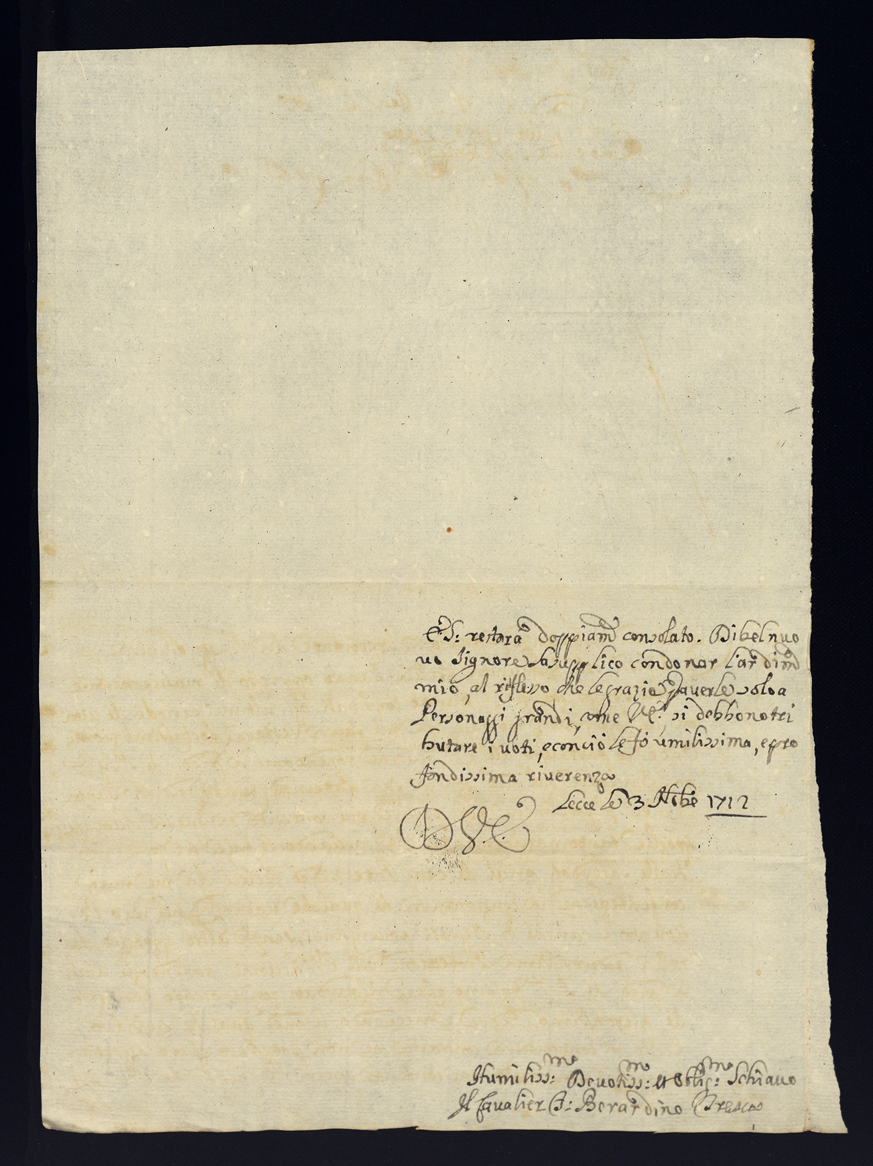 restarà doppiam.e consolato. Di bel nuo
vo Signore la supplico condonar l'ardim.to
mio, al riflesso che le grazie solo a
Personaggi grandi, come V.E. si debbono tri
butare i voti, e con ciò le fò umilissima, e pro
fondissima riverenza
Lecce le 3 1712
D. V. E.
Humiliss:mo Devotiss:mo et Oblig:mo Schiavo
Il Cavalier Berardino